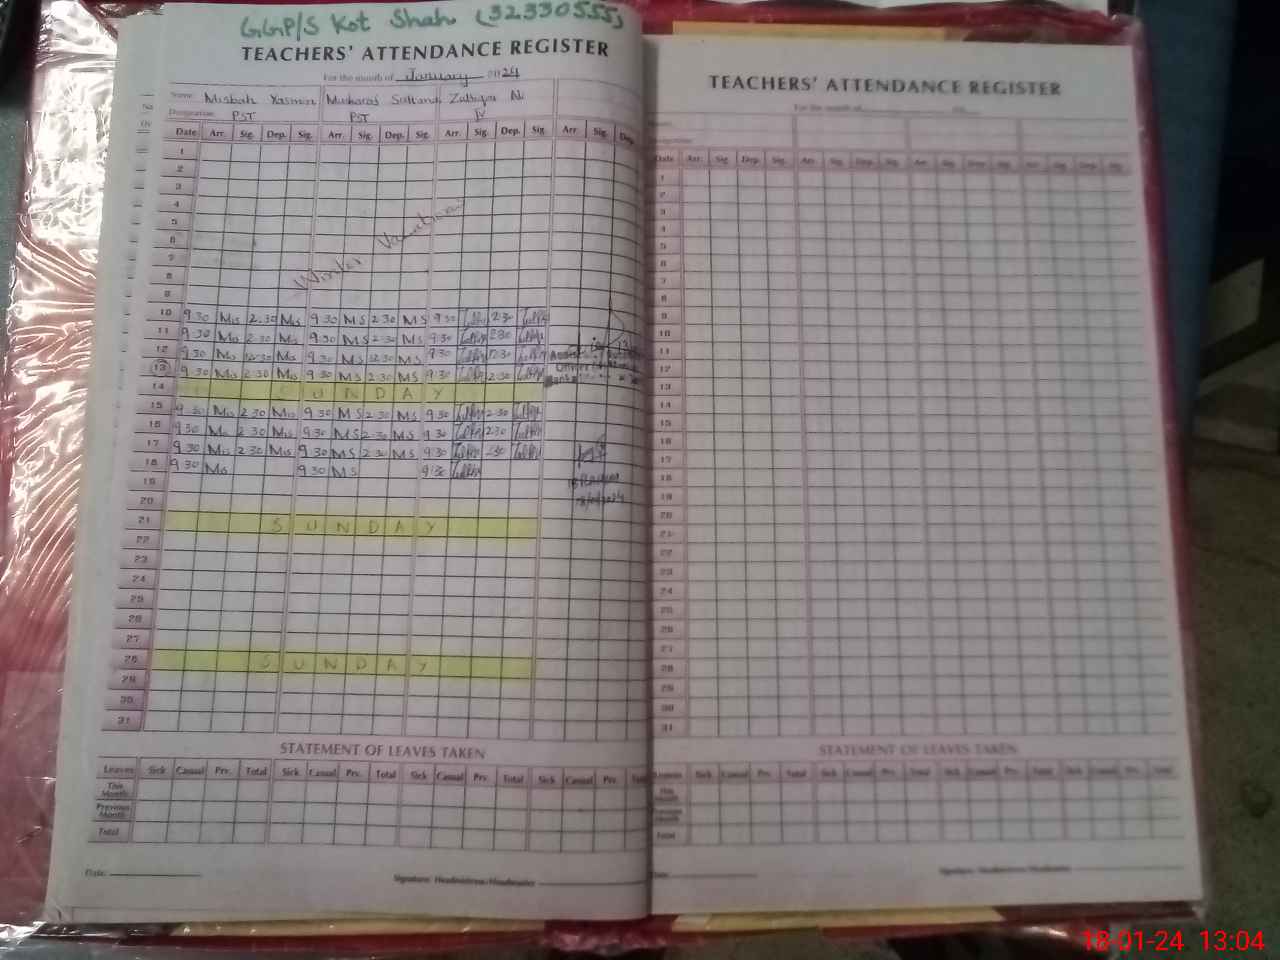 GGP/S Kot Shah (32330555)
TEACHERS' ATTENDANCE REGISTER
For the month of January 2024
Name: Misbah Yasmin Musharaf Sultana Zulfiqar
Designation: PST PST IV
Date Arr. Sig. Dep. Sig. Arr. Sig. Dep. Sig. Arr. Sig. Dep. Sig. Arr. Sig. Dep.
1
2
3
4
5
6
7
8
9
Winter Vacations
10 9.30 Mis 2.30 Mis 9 30 M S 2 30 M S 9 30 2 30
11 9 30 Mis 2 30 Mis 9 30 M S 2 30 M S 9 30 2 30
12 9 30 Mis 12 30 Mis 9 30 M S 12 30 M S 9 30 12 30
13 9 30 Mis 2 30 Mis 9 30 M S 2 30 M S 9 30 2 30
14 S U N D A Y
15 9 30 Mis 2 30 Mis 9 30 M S 2 30 M S 9 30 2 30
16 9 30 Mis 2 30 Mis 9 30 M S 2 30 M S 9 30 2 30
17 9 30 Mis 2 30 Mis 9 30 M S 2 30 M S 9 30 2 30
18 9 30 Mis 9 30 M S 9 30
19
20
21 S U N D A Y
22
23
24
25
26
27
28 S U N D A Y
29
30
31
STATEMENT OF LEAVES TAKEN
Leaves Sick Casual Prv. Total Sick Casual Prv. Total Sick Casual Prv. Total Sick Casual Prv.
This Month
Previous Month
Total
Date: Signature: Headmistress/Headmaster
TEACHERS' ATTENDANCE REGISTER
For the month of
Date Arr. Sig. Dep. Sig. Arr. Sig. Dep. Sig. Arr. Sig. Dep. Sig. Arr. Sig. Dep. Sig.
1
2
3
4
5
6
7
8
9
10
11
12
13
14
15
16
17
18
19
20
21
22
23
24
25
26
27
28
29
30
31
STATEMENT OF LEAVES TAKEN
Leaves Sick Casual Prv. Total Sick Casual Prv. Total Sick Casual Prv. Total Sick Casual Prv. Total
This Month
Previous Month
Total
Date Signature: Headmistress/Headmaster
18-01-24 13:04